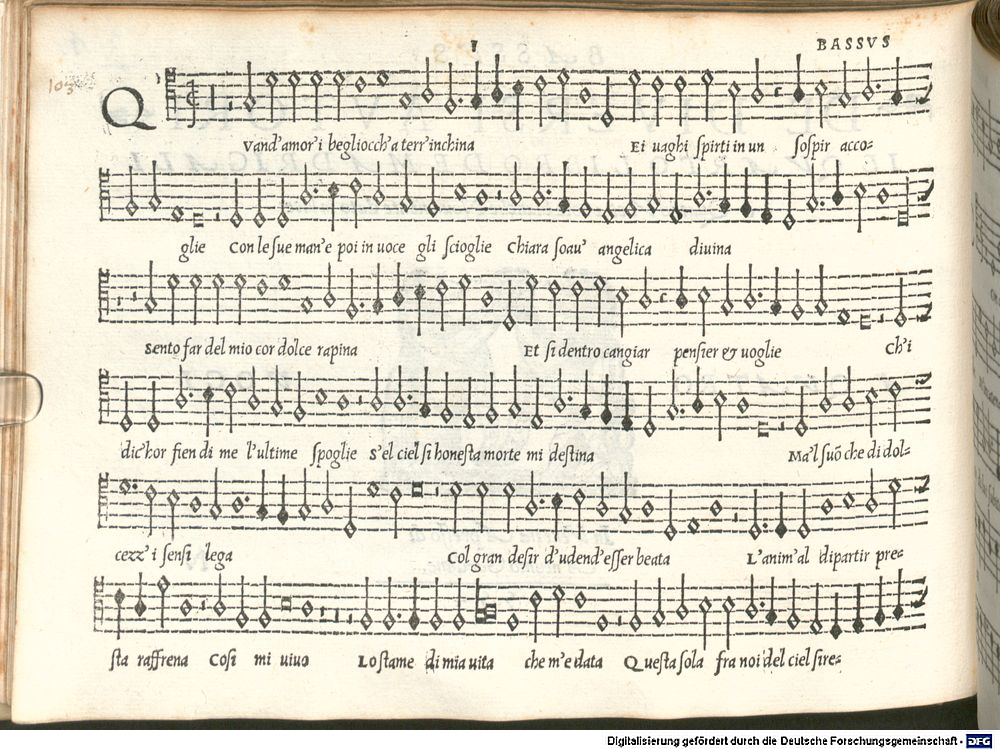 1 BASSVS
103
Q
Vand'amor'i begliocch'a terr'inchina Ei uaghi spirti in un sospir acco-
glie Con le sue man'e poi in uoce gli scioglie Chiara soau' angelica diuina
Sento far del mio cor dolce rapina Et si dentro cangiar pensier & uoglie Ch'i
dic'hor fien di me l'ultime spoglie S'el ciel si honesta morte mi destina Ma'l suõ che di dol-
cezz'i sensi lega Col gran desir d'udend'esser beata L'anim'al dipartir pre-
sta raffrena Cosi mi uiuo Lo stame di mia uita che m'e data Questa sola fra noi del ciel sire-
Digitalisierung gefördert durch die Deutsche Forschungsgemeinschaft - DFG